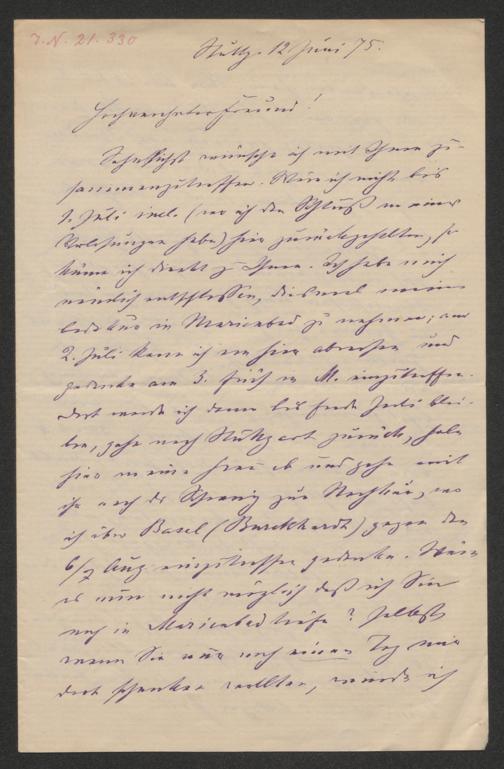 J.N. 21.330
Stuttg. 12. Juni 75.
Hochverehrter Freund!
Sehnlichst wünsche ich mit Ihnen zu-
sammenzutreffen. Wäre ich nicht bis
1. Juli incl. (wo ich den Schluß meiner
Vorlesungen habe) hier zurückgehalten, so
käme ich direkt zu Ihnen. Ich habe mich
nämlich entschlossen, diesmal meine
Badekur in Marienbad zu nehmen; am
2. Juli kann ich von hier abreisen und
gedenke am 3. früh in M. einzutreffen.
Dort werde ich dann bis Ende Juli blei-
ben, gehe nach Stuttgart zurück, hole
hier meine Frau ab und gehe mit
ihr nach der Schweiz zur Nachkur, wo
ich über Basel (Burckhardt) gegen den
6/7 Aug. einzutreffen gedenke. Wäre
es nun nicht möglich daß ich Sie
noch in Marienbad träfe? Selbst
wenn Sie nur noch einen Tag mir
dort schenken wollten, würde ich